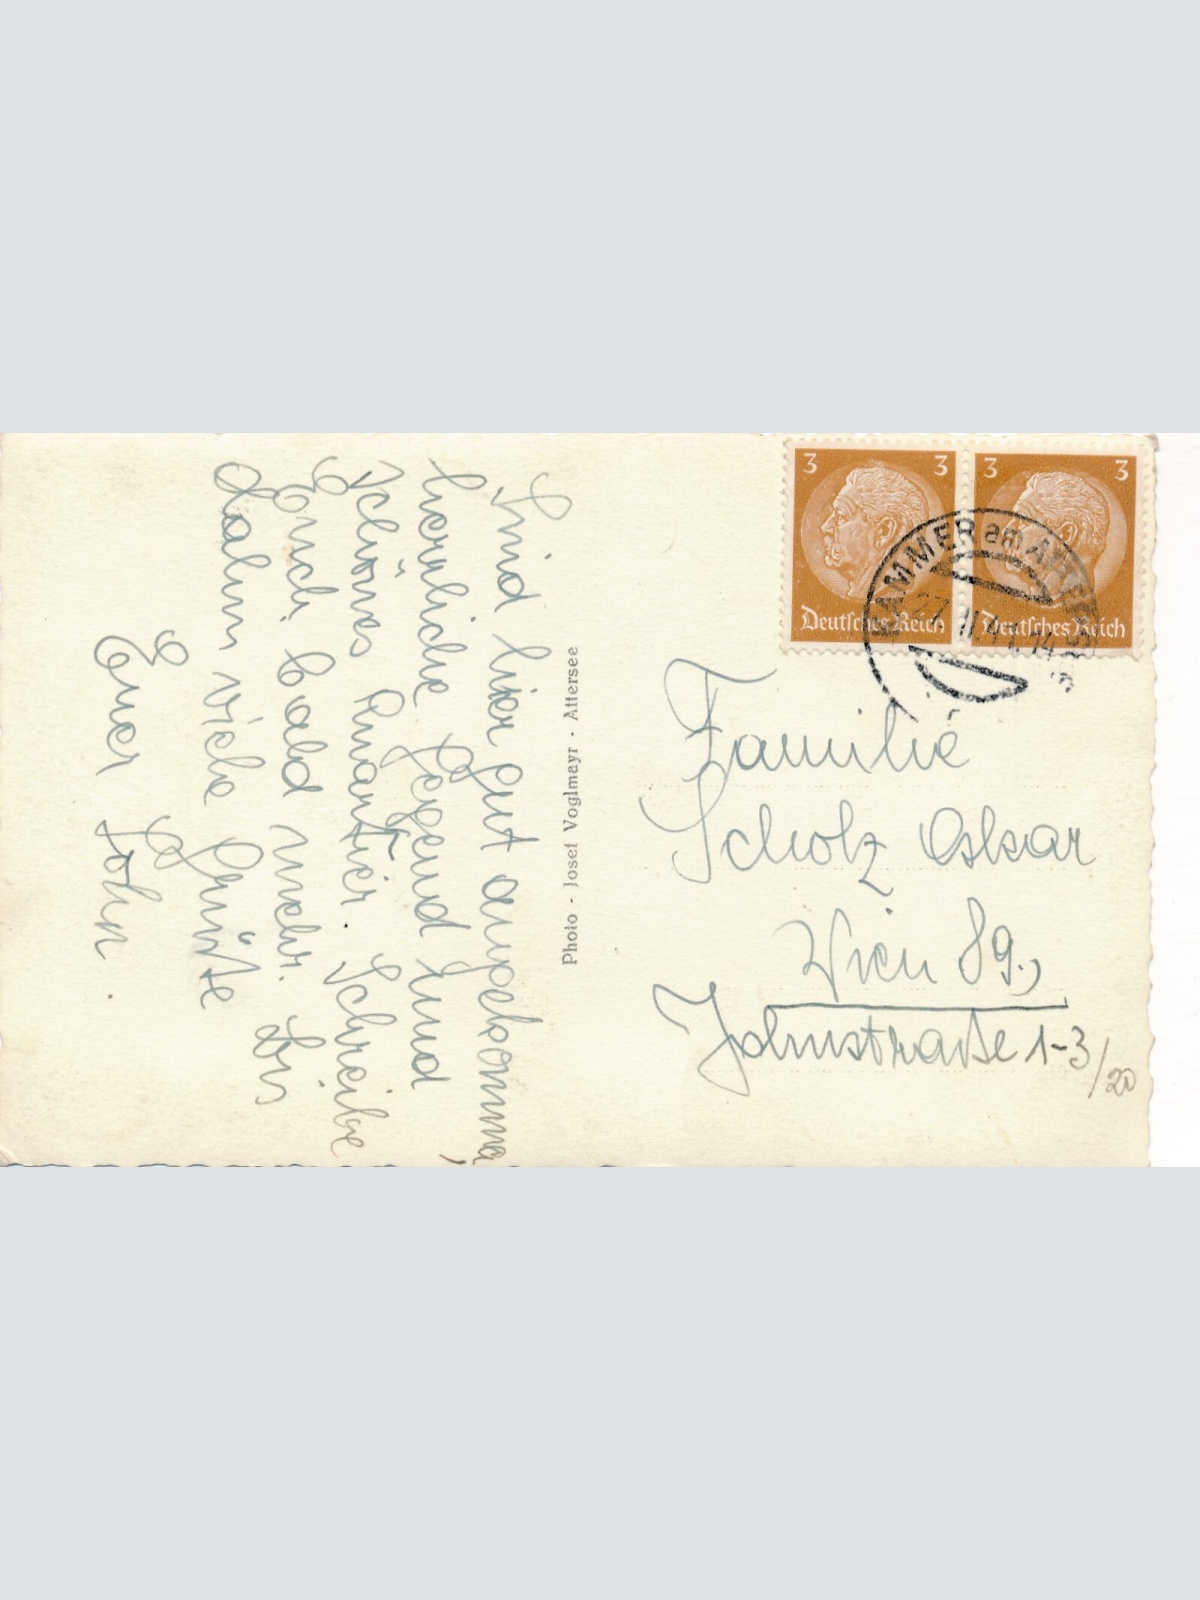 Sind hier gut angekommen,
herrliche Gegend und
schönes Quartier. Schreibe
Euch bald mehr. Bis
dahin viele Grüße
Euer John.
Photo - Josef Voglmayr - Attersee
3 3 3 3
Deutsches Reich Deutsches Reich
KAMMER am ATTERSEE
Familie
Scholz Oskar
Wien 89.,
Johnstraße 1-3/20